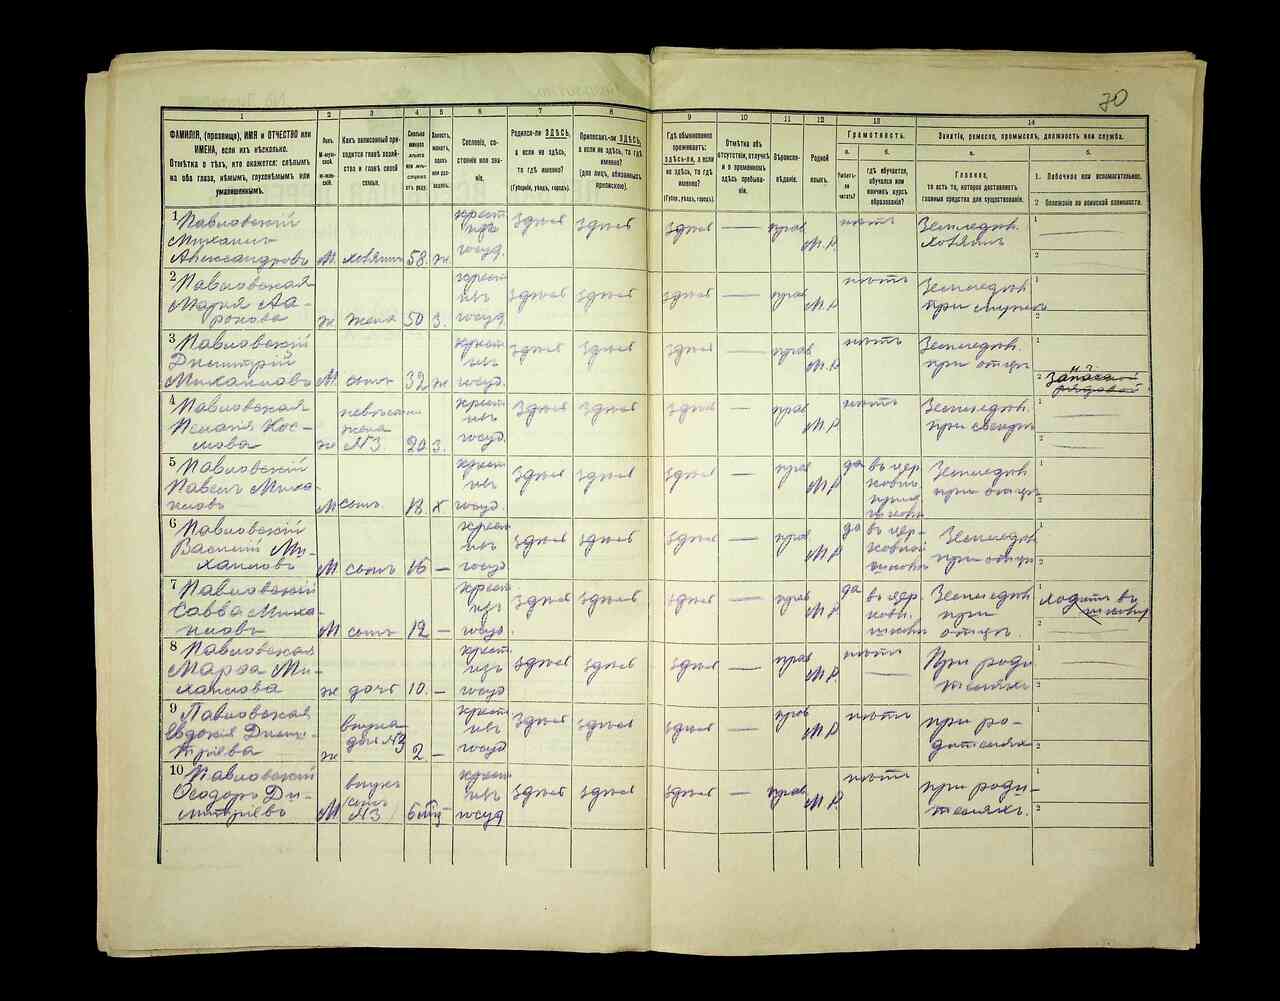 70
1
2
3
4
5
6
7
8
9
10
11
12
13
14
ФАМИЛІЯ, (прозвище), ИМЯ и ОТЧЕСТВО или
ИМЕНА, если ихъ нѣсколько.
Отмѣтка о тѣхъ, кто окажется: слѣпымъ
на оба глаза, нѣмымъ, глухонѣмымъ или
умалишеннымъ.
Полъ.
М-муж-
ской.
Ж-жен-
скій.
Какъ записанный при-
ходится главѣ хозяй-
ства и главѣ своей
семьи.
Сколько
минуло
лѣтъ
или мѣ-
сяцевъ
отъ роду.
Холостъ,
женатъ,
вдовъ
или раз-
веденъ.
Сословіе, со-
стояніе или зва-
ніе.
Родился-ли ЗДѢСЬ,
а если не здѣсь,
то гдѣ именно?
(Губернія, уѣздъ, городъ).
Приписанъ-ли ЗДѢСЬ,
а если не здѣсь, то гдѣ
именно?
(для лицъ, обязанныхъ
припискою).
Гдѣ обыкновенно
проживаетъ:
здѣсь-ли, а если
не здѣсь, то гдѣ
именно?
(Губерн., уѣздъ, городъ).
Отмѣтка объ
отсутствіи, отлучкѣ
и о временномъ
здѣсь пребыва-
ніи.
Вѣроиспо-
вѣданіе.
Родной
языкъ.
Грамотность.
а.
б.
Умѣетъ-
ли
читать?
гдѣ обучается,
обучался или
кончилъ курсъ
образованія?
Занятіе, ремесло, промыселъ, должность или служба.
а.
б.
Главное,
то есть то, которое доставляетъ
главныя средства для существованія.
1. Побочное или вспомогательное.
2 Положеніе по воинской повинности.
1 Павловскій
Михаилъ
Александровъ М. хозяинъ 58. ж
крест
изъ
госуд.
здѣсь здѣсь здѣсь — прав М.Р нѣтъ
Земледѣл.
хозяинъ
1
2
2 Павловская
Марія Аа-
ронова ж жена 50 з.
крест
изъ
госуд
здѣсь здѣсь здѣсь — прав М.Р нѣтъ
Земледѣл.
при мужѣ
1
2
3 Павловскій
Дмитрій
Михаиловъ М. сынъ 32 ж
крест
изъ
госуд.
здѣсь здѣсь здѣсь — прав М.Р нѣтъ
Земледѣл.
при отцѣ
1
2 запасной
рядовой
4 Павловская
Пелагія Кос-
мова ж
невѣстка
жена
№3. 20 з.
крест
изъ
госуд.
здѣсь здѣсь здѣсь — прав М.Р нѣтъ
Земледѣл.
при свекрѣ
1
2
5 Павловскій
Павелъ Миха-
иловъ М сынъ 18. х
крест
изъ
госуд.
здѣсь здѣсь здѣсь — прав М.Р да
въ цер
ковн.
школѣ
Земледѣл
при отцѣ
1
2
6 Павловскій
Василій Ми-
хаиловъ М сынъ 16 —
крест
изъ
госуд
здѣсь здѣсь здѣсь — прав М.Р да
въ цер-
ковной
школѣ
Земледѣл
при отцѣ
1
2
7 Павловскій
Савва Миха-
иловъ М сынъ 12 —
крест
изъ
госуд.
здѣсь здѣсь здѣсь — прав М.Р да
въ цер
ковн.
школѣ
Земледѣл
при
отцѣ.
1 ходитъ въ
школу
2
8 Павловская
Марѳа Ми-
хаилова ж дочь 10. —
крест
изъ
госуд
здѣсь здѣсь здѣсь — прав М.Р нѣтъ
При роди
теляхъ
1
2
9 Павловская
Евдокія Дими-
тріева ж
внучка
дочь №3 2 —
крест
изъ
госуд
здѣсь здѣсь здѣсь — прав М.Р нѣтъ
при ро-
дителяхъ
1
2
10 Павловскій
Ѳеодоръ Ди-
митріевъ М
внукъ
сынъ
№3 6
крест
изъ
госуд
здѣсь здѣсь здѣсь — прав М.Р нѣтъ
при роди-
теляхъ.
1
2